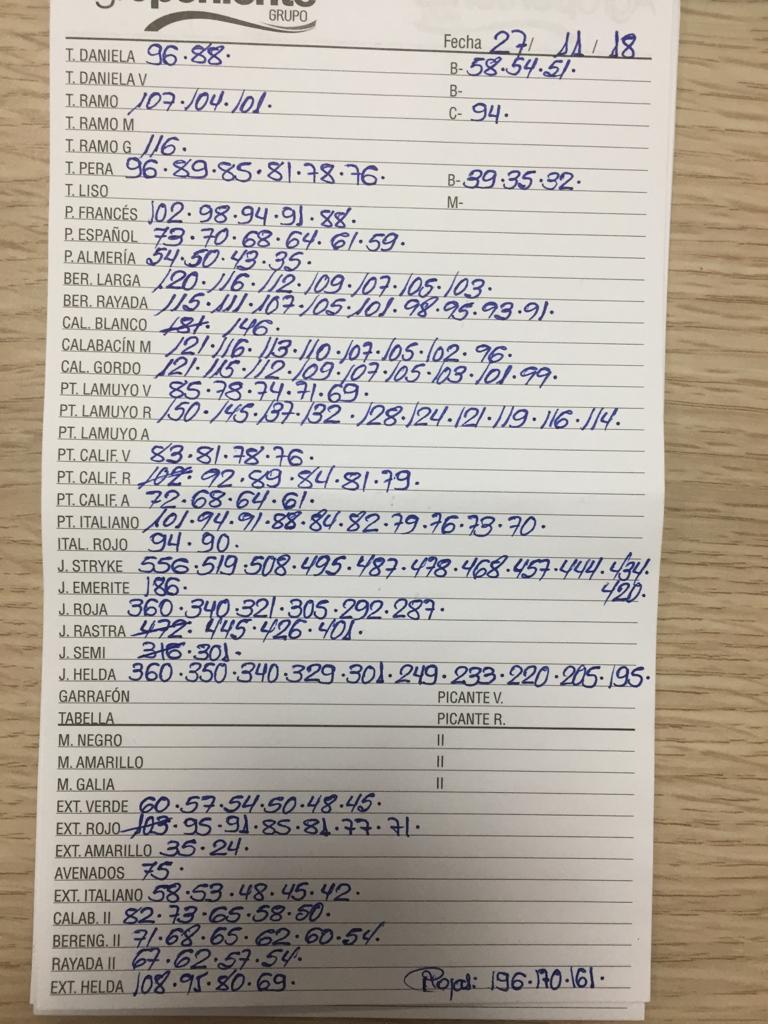 GRUPO
Fecha 27/ 11 / 18
T. DANIELA 96·88· B- 58·54·51·
T. DANIELA V B-
T. RAMO 107·104·101· C- 94·
T. RAMO M
T. RAMO G 116·
T. PERA 96·89·85·81·78·76· B- 39·35·32·
T. LISO M-
P. FRANCÉS 102·98·94·91·88·
P. ESPAÑOL 73·70·68·64·61·59·
P. ALMERÍA 54·50·43·35·
BER. LARGA 120·116·112·109·107·105·103·
BER. RAYADA 115·111·107·105·101·98·95·93·91·
CAL. BLANCO 181· 146·
CALABACÍN M 121·116·113·110·107·105·102·96·
CAL. GORDO 121·115·112·109·107·105·103·101·99·
PT. LAMUYO V 85·78·74·71·69·
PT. LAMUYO R 150·145·137·132·128·124·121·119·116·114·
PT. LAMUYO A
PT. CALIF. V 83·81·78·76·
PT. CALIF. R 102· 92·89·84·81·79·
PT. CALIF. A 72·68·64·61·
PT. ITALIANO 101·94·91·88·84·82·79·76·73·70·
ITAL. ROJO 94·90·
J. STRYKE 556·519·508·495·487·478·468·457·444·434·
420·
J. EMERITE 186·
J. ROJA 360·340·321·305·292·287·
J. RASTRA 472· 445·426·401·
J. SEMI 316·301·
J. HELDA 360·350·340·329·301·249·233·220·205·195·
GARRAFÓN PICANTE V.
TABELLA PICANTE R.
M. NEGRO II
M. AMARILLO II
M. GALIA II
EXT. VERDE 60·57·54·50·48·45·
EXT. ROJO 103·95·91·85·81·77·71·
EXT. AMARILLO 35·24·
AVENADOS 75·
EXT. ITALIANO 58·53·48·45·42·
CALAB. II 82·73·65·58·50·
BERENG. II 71·68·65·62·60·54·
RAYADA II 67·62·57·54·
EXT. HELDA 108·95·80·69· Rojas: 196·170·161·